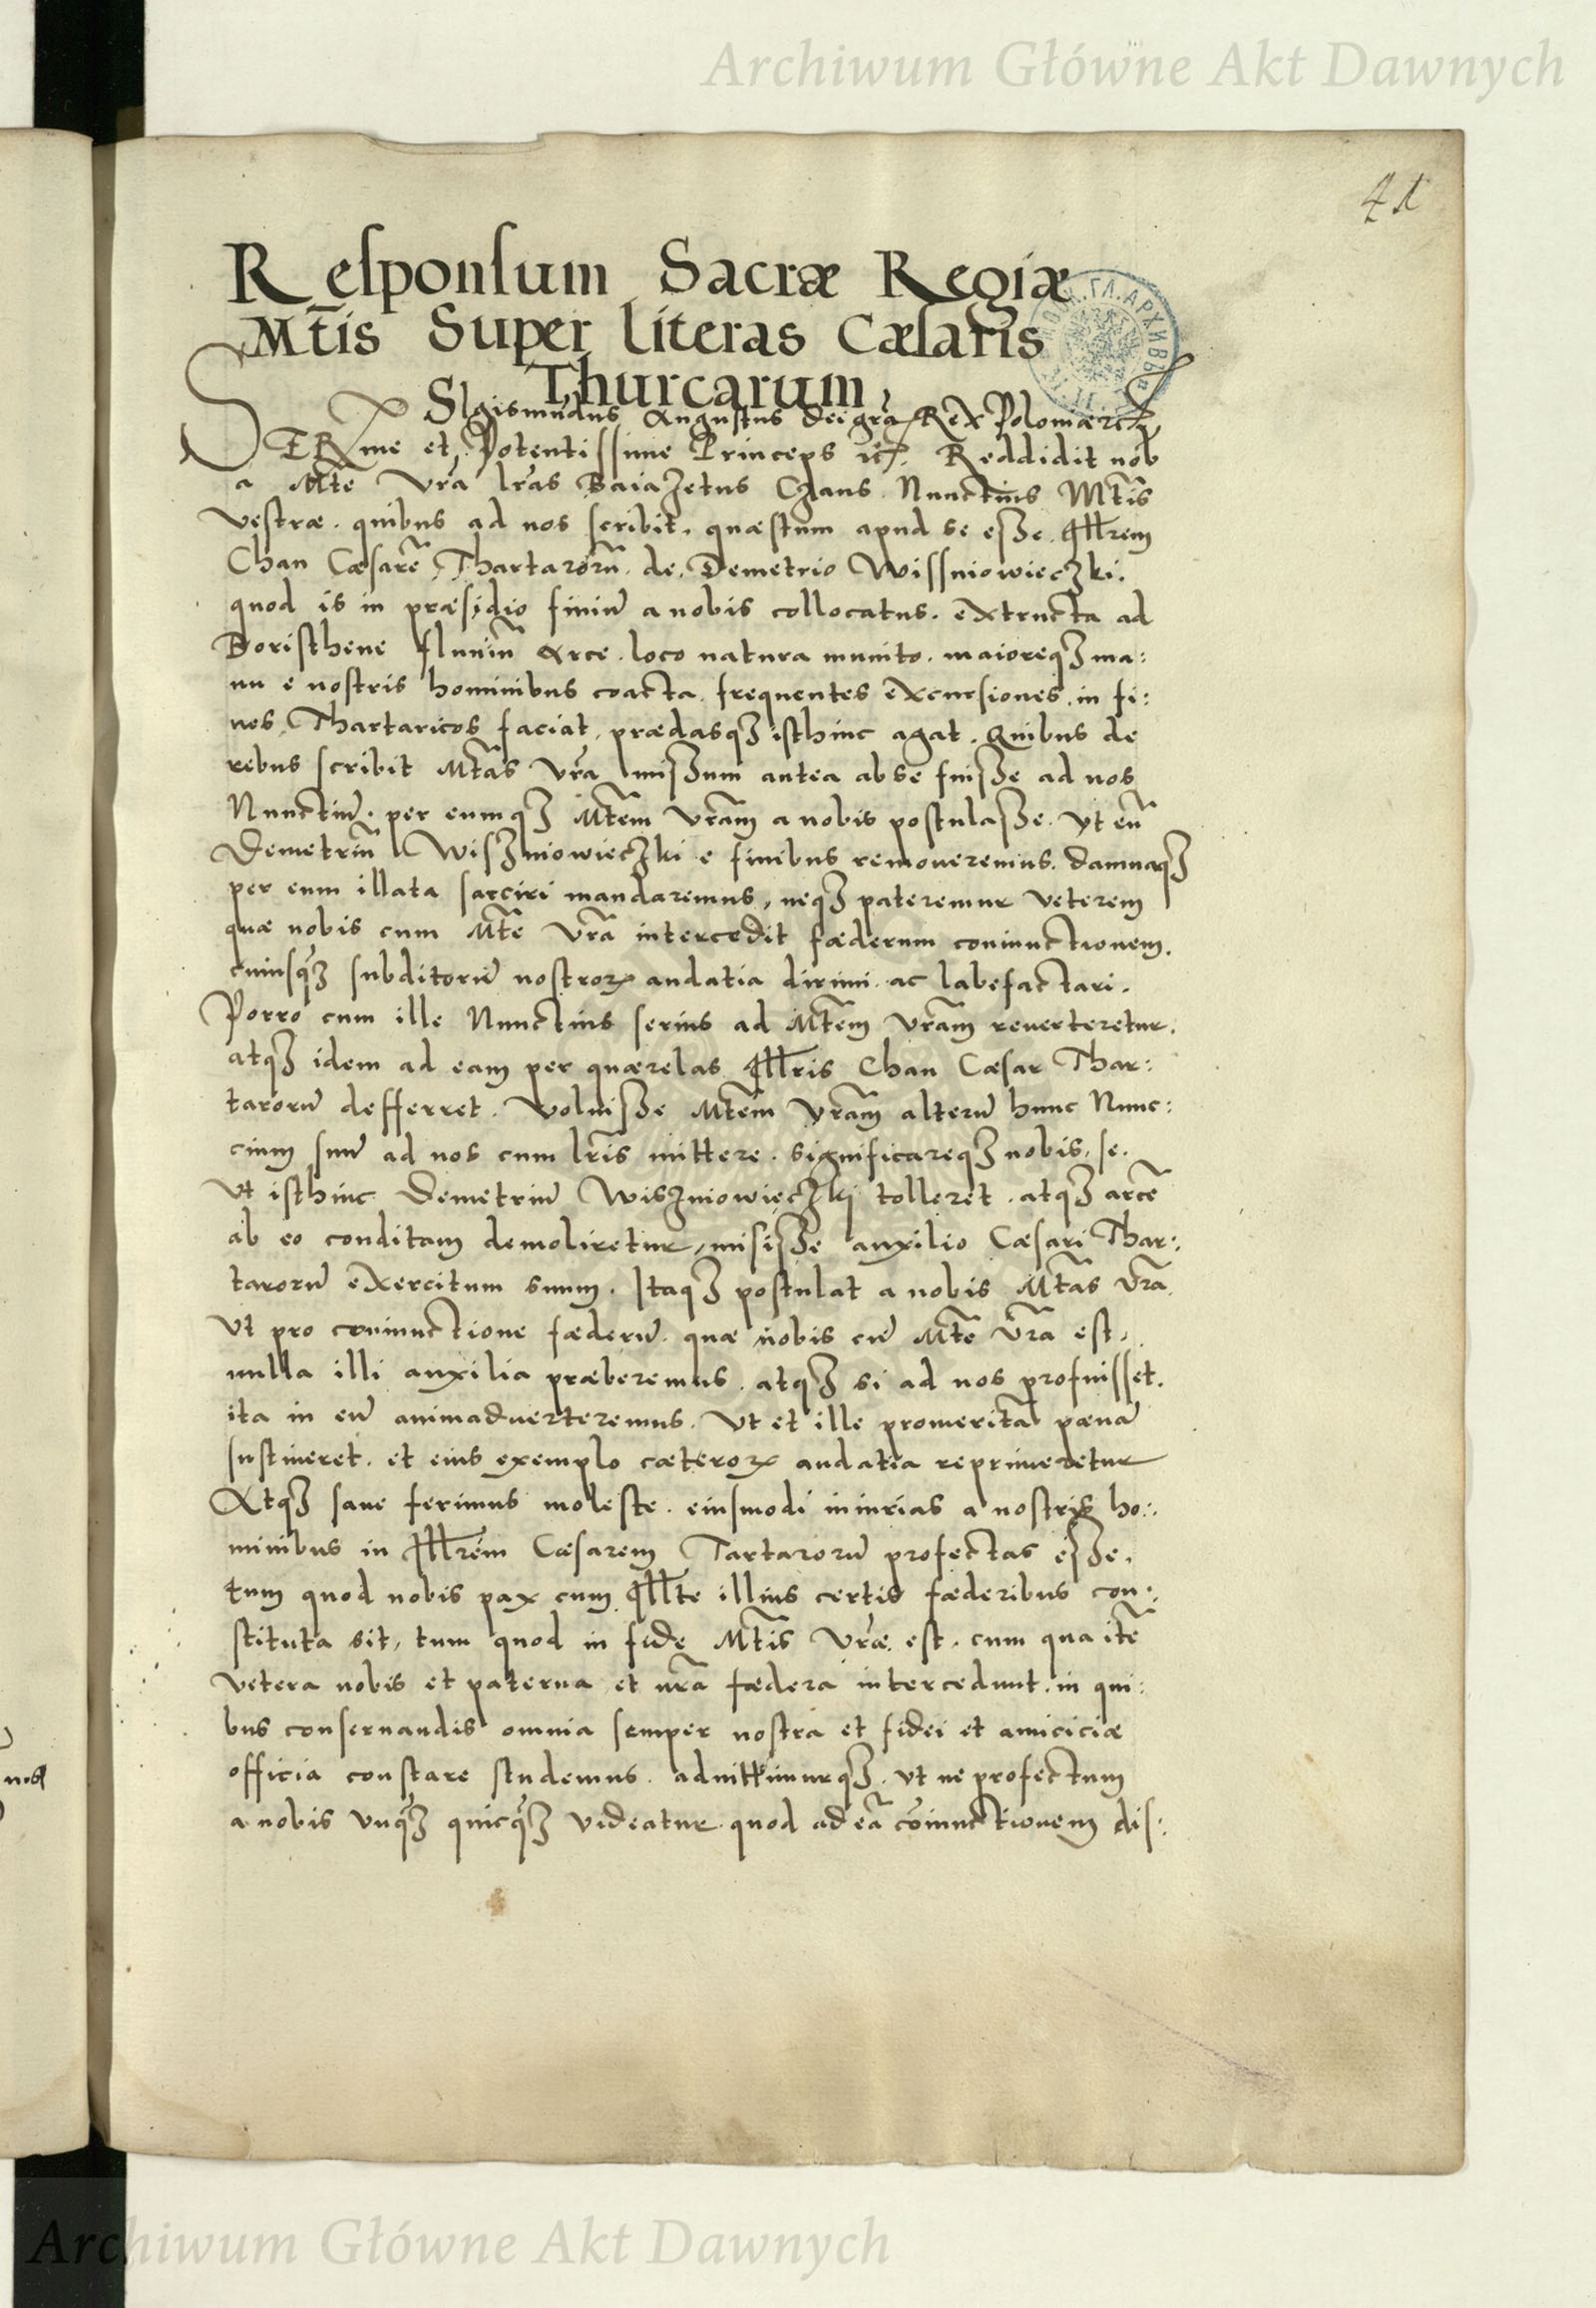 Archiwum Główne Akt Dawnych
41
Responsum Sacræ Regiæ
Mt̃is Super literas Cæsaris
Thurcarum,
Sigismũdus Augustus dei grã Rex Poloniæ etc.
SERme et Potentissime Princeps etc. Reddidit nob
a Mte Vrã lrãs Baiazetus Czaus Nunctius Mtis
Vestræ. quibus ad nos scribit. quæstum apud se esse. Illrem
Chan Cæsarẽ Thartarorũ. de. Demetrio Wissniowieczki.
quod is in præsidio finiũ a nobis collocatus. extructa ad
Boristhene fluuiũ Arce. loco natura munito. maioreq₃ ma:
nu e nostris hominibus coacta. frequentes excursiones. in fi:
nes Thartaricos faciat, prædasq₃ isthinc agat. Quibus de
rebus scribit Mtas Vrã missum antea ab se fuisse ad nos
Nunctiũ. per eumq₃ Mtem Vrãm a nobis postulasse. Vt eũ
Demetriũ Wiszniowieczki e finibus remoueremus. damnaq₃
per eum illata sarciri mandaremus, neq₃ pateremur veterem
quæ nobis cum Mte Vrã intercedit fæderum coniunctionem.
cuiusq₃ subditorũ nostroꝝ audatia dirimi. ac labefactari.
Porro cum ille Nunctius serius ad Mtem Vrãm reuerteretur.
atq₃ idem ad eam per quærelas Illris Chan Cæsar Thar:
tarorũ defferret. Voluisse Mtem Vrãm alterũ hunc Nunc:
cium suũ ad nos cum lrĩs mittere. significareq₃ nobis. se.
Vt isthinc Demetriũ Wiszniowieczki tolleret. atq₃ arcẽ
ab eo conditam demoliretur, misisse auxilio Cæsari Thar:
tarorũ exercitum suum. Itaq₃ postulat a nobis Mtas Vrã.
Vt pro coniunctione fæderũ. quæ nobis cũ Mte Vrã est,
nulla illi auxilia præberemus. atq₃ si ad nos profuisset.
ita in eũ animaduerteremus. Vt et ille promeritã pænã
sustineret. et eius exemplo cæteroꝝ audatia reprimeretur
Atq₃ sane ferimus moleste. eiusmodi iniurias a nostris ho:
minibus in Illrem Cæsarem Tartarorũ profectas esse.
tum quod nobis pax cum Illte illius certis fæderibus con:
stituta sit, tum quod in fide Mtis Vræ est. cum qua itẽ
vetera nobis et paterna et nrã fædera intercedunt. in qui:
bus conseruandis omnia semper nostra et fidei et amiciciæ
officia constare studemus. adnittimurq₃. vt ne profectum
a nobis vnq₃ quicq₃ videatur. quod ad eã cõiunctionem dis:
Archiwum Główne Akt Dawnych